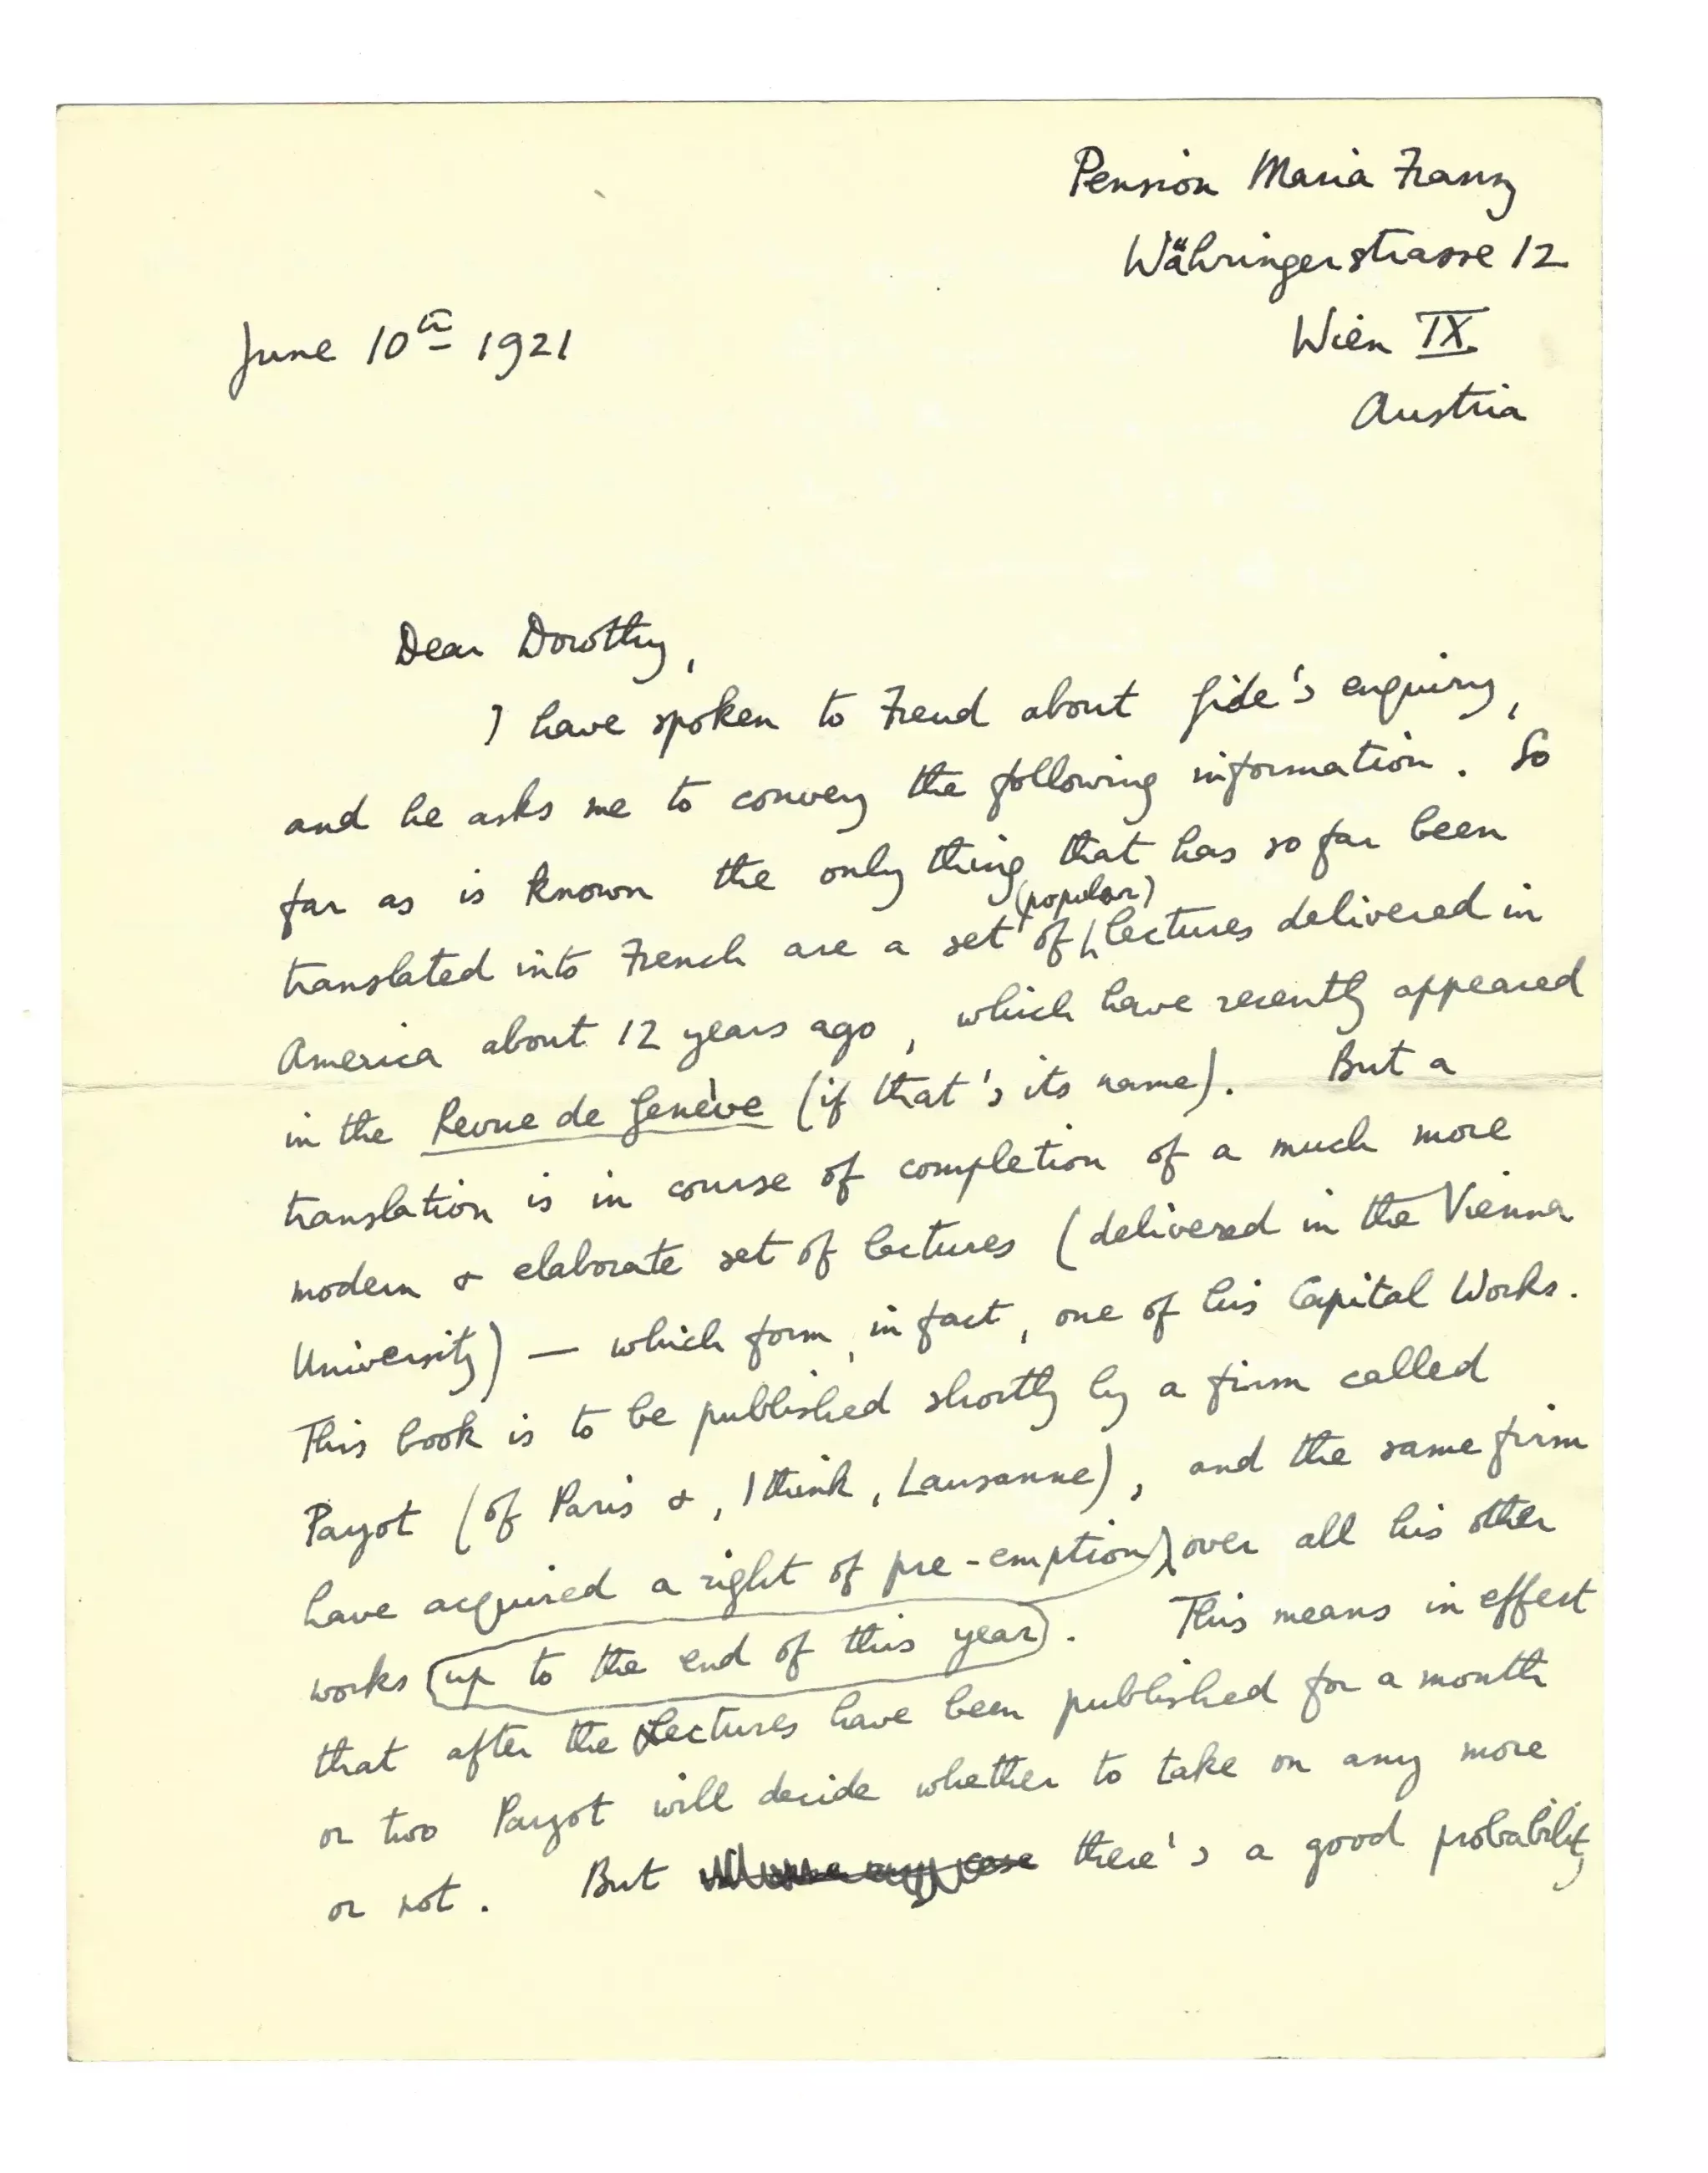 Pension Maria Franz
Währingerstrasse 12
Wien IX.
Austria
June 10th 1921
Dear Dorothy,
I have spoken to Freud about Gide's enquiry,
and he asks me to convey the following information. So
far as is known the only thing that has so far been
(popular)
translated into French are a set of lectures delivered in
America about 12 years ago, which have recently appeared
in the Revue de Genève (if that's its name). But a
translation is in course of completion of a much more
modern & elaborate set of lectures (delivered in the Vienna
University) — which form, in fact, one of his Capital Works.
This book is to be published shortly by a firm called
Payot (of Paris &, I think, Lausanne), and the same firm
have acquired a right of pre-emption over all his other
works (up to the end of this year). This means in effect
that after the Lectures have been published for a month
or two Payot will decide whether to take on any more
or not. But there's a good probability